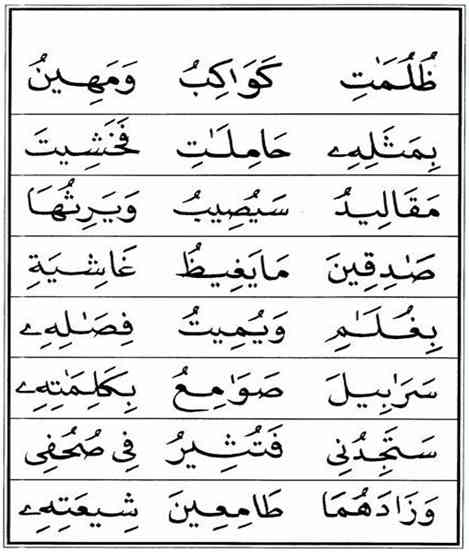 ظُلُمَٰتِ كَوَاكِبُ وَمَهِينُ
بِمَثَلِهِۦ حَامِلَٰتِ فَخَشِيتَ
مَقَالِيدُ سَيُصِيبُ وَيَرِثُهَا
صَٰدِقِينَ مَايَغِيظُ غَاشِيَةِ
بِغُلَٰمٍ وَيُمِيتُ فِصَٰلِهِۦ
سَرَابِيلَ صَوَامِعُ بِكَلِمَٰتِهِۦ
سَتَجِدُنِي فَتُثِيرُ فِي صُحُفِي
وَزَادَهُمَا طَامِعِينَ شِيعَتِهِۦ